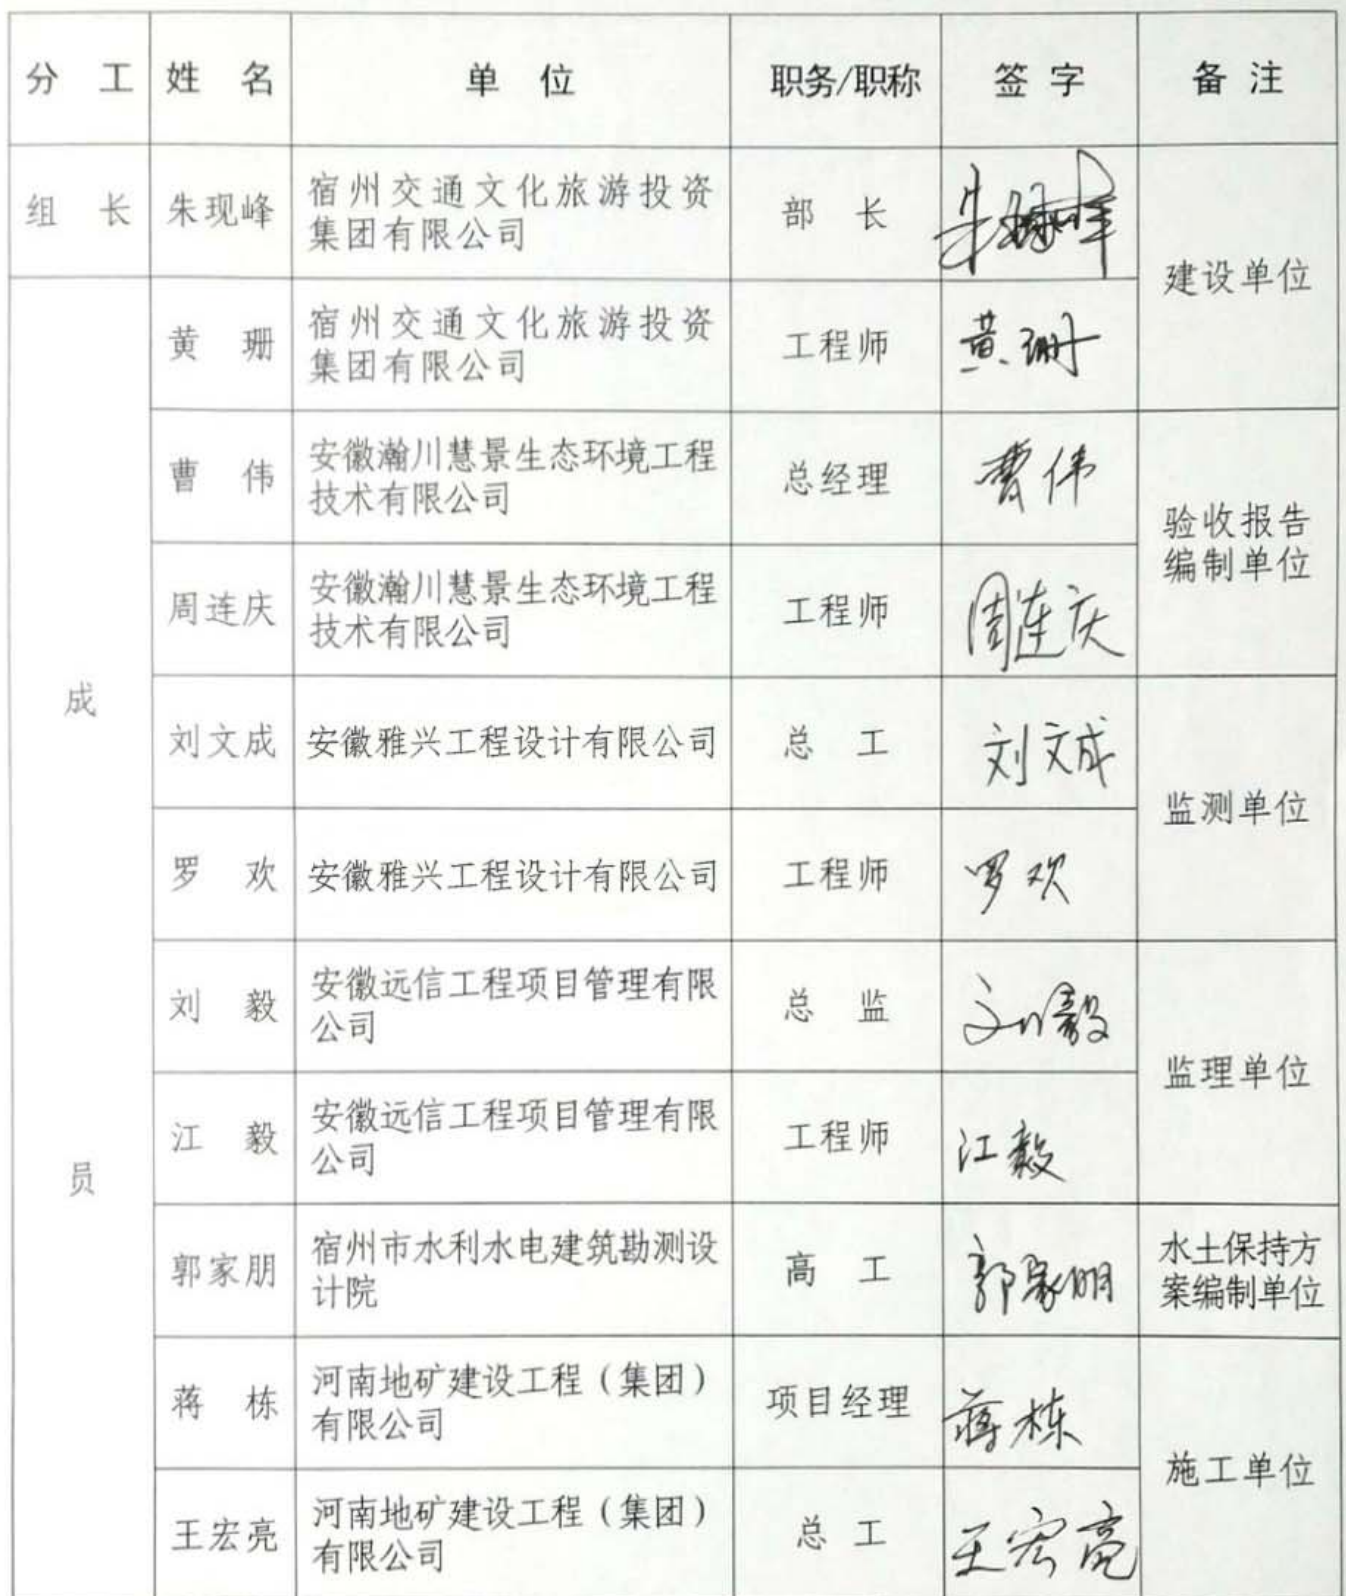 分 工 姓 名 单 位 职务/职称 签 字 备 注
组 长 朱现峰 宿州交通文化旅游投资
集团有限公司 部 长 朱现峰
建设单位
黄 珊 宿州交通文化旅游投资
集团有限公司 工程师 黄珊
曹 伟 安徽瀚川慧景生态环境工程
技术有限公司 总经理 曹伟
验收报告
编制单位
周连庆 安徽瀚川慧景生态环境工程
技术有限公司 工程师 周连庆
成
刘文成 安徽雅兴工程设计有限公司 总 工 刘文成
监测单位
罗 欢 安徽雅兴工程设计有限公司 工程师 罗欢
刘 毅 安徽远信工程项目管理有限
公司 总 监 刘毅
监理单位
江 毅 安徽远信工程项目管理有限
公司 工程师 江毅
员
郭家朋 宿州市水利水电建筑勘测设
计院 高 工 郭家朋 水土保持方
案编制单位
蒋 栋 河南地矿建设工程（集团）
有限公司 项目经理 蒋栋
施工单位
王宏亮 河南地矿建设工程（集团）
有限公司 总 工 王宏亮